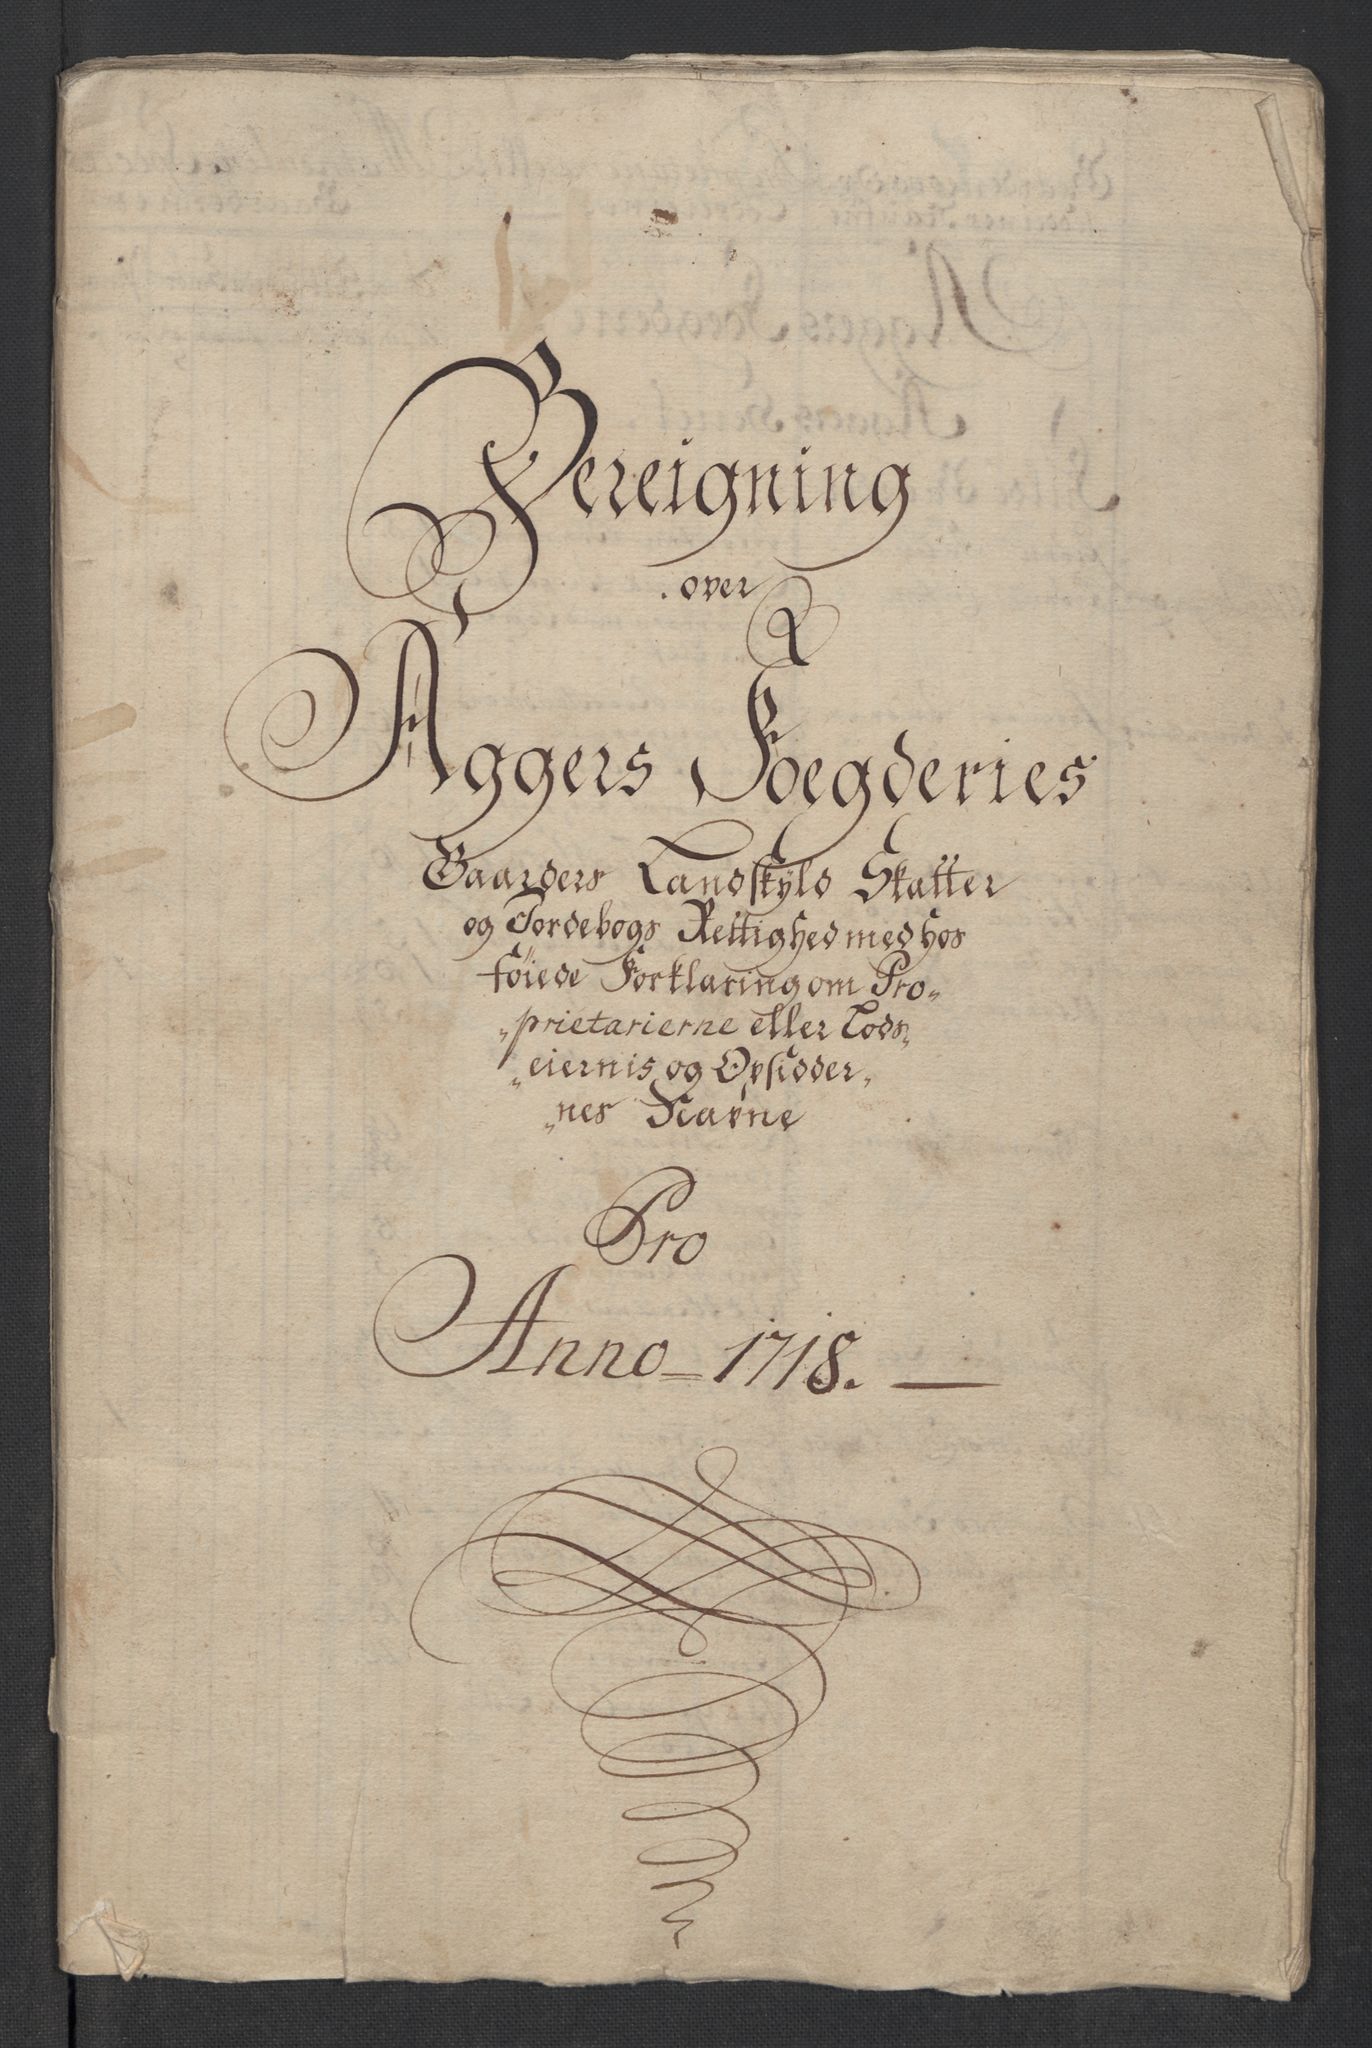 Bereigning
over
Aggers Foegderies
Gaarders Landskyld Skatter
og Jordebogs Rettighed med hos
föiede Forklaring om Pro„
„prietarierne eller Lods„
„eiernis og Opsidder„
„nes Navne
Pro
Anno 1718.